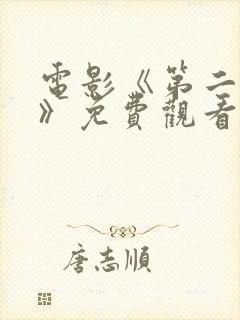 電影《第二
》免費觀看
唐志順